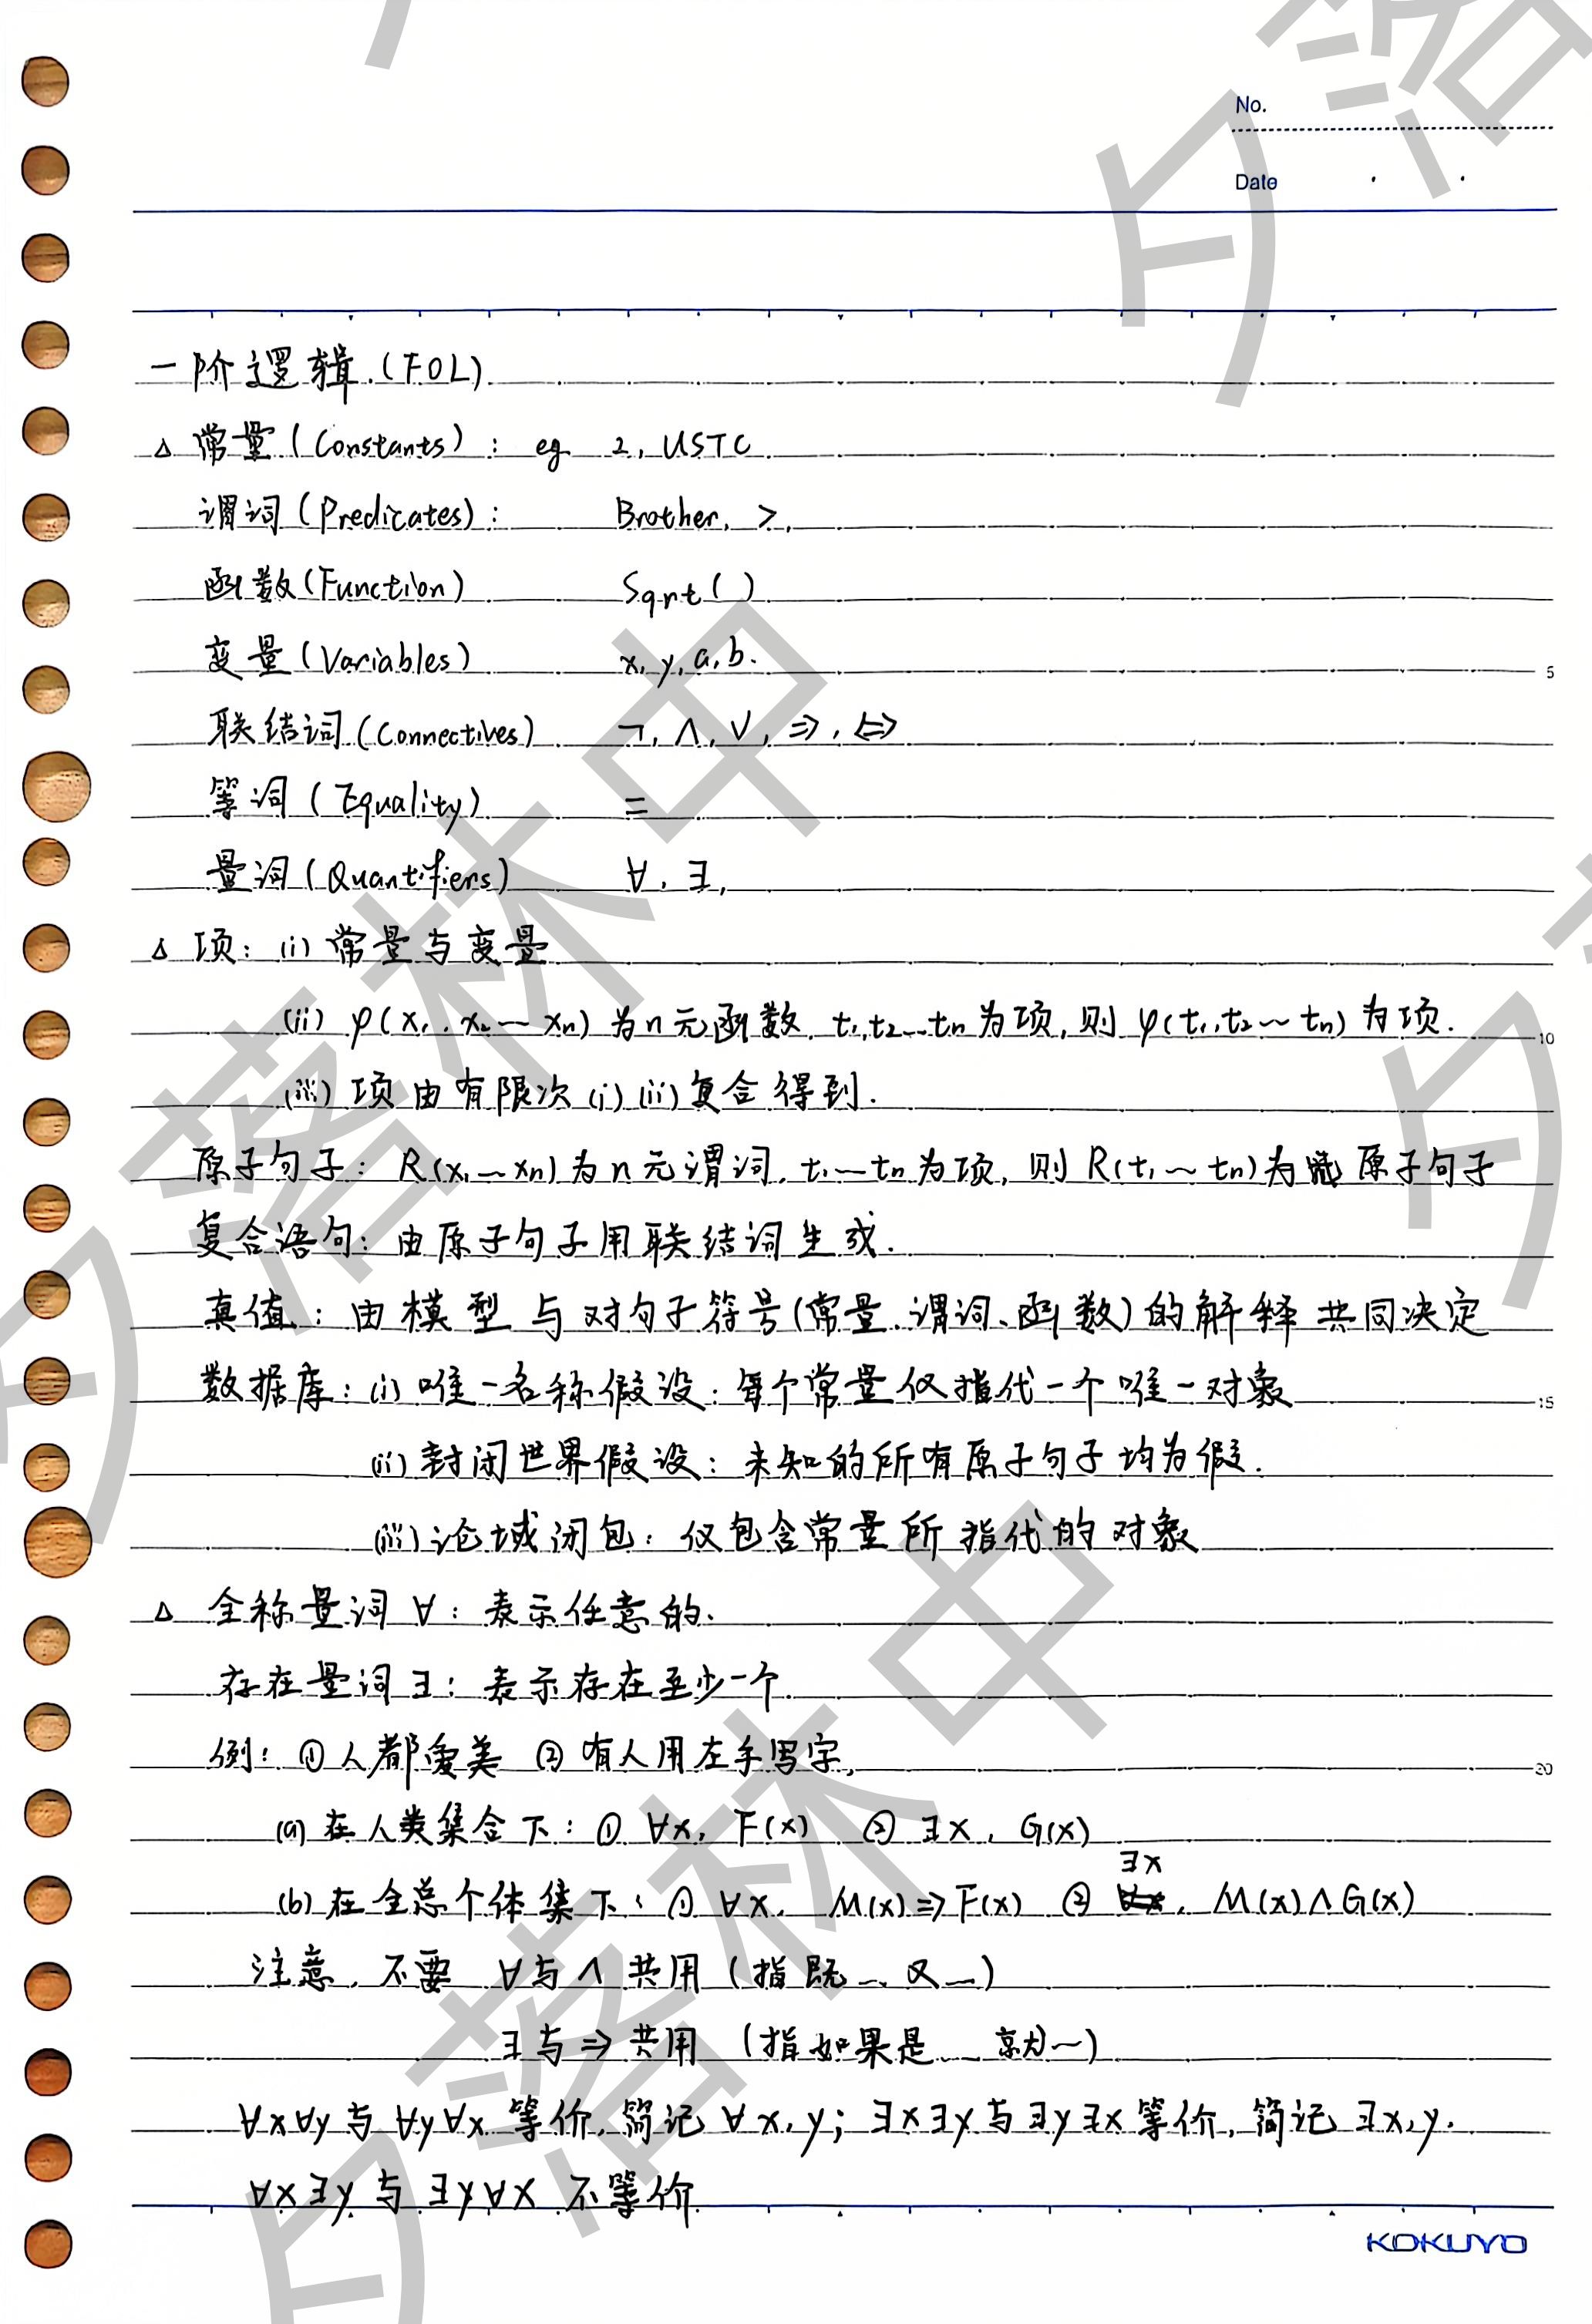 No.
Date
一阶逻辑.(FOL)
△ 常量(Constants): eg 2, USTC
谓词(Predicates): Brother, >,
函数(Function) Sqrt()
变量(Variables) x, y, a, b.
联结词(Connectives) ¬, ∧, ∨, ⇒, ⇔
等词(Equality) =
量词(Quantifiers) ∀, ∃,
△ 项: (i) 常量与变量
(ii) φ(x₁, x₂ … xₙ) 为n元函数, t₁, t₂ … tₙ 为项, 则 φ(t₁, t₂ ~ tₙ) 为项.
(iii) 项由有限次(i)(ii)复合得到.
原子句子: R(x₁ … xₙ)为n元谓词, t₁ … tₙ为项, 则 R(t₁ ~ tₙ)为原子句子
复合语句: 由原子句子用联结词生成.
真值: 由模型与对句子符号(常量、谓词、函数)的解释共同决定
数据库: (i) 唯一名称假设: 每个常量仅指代一个唯一对象
(ii) 封闭世界假设: 未知的所有原子句子均为假.
(iii) 论域闭包: 仅包含常量所指代的对象
△ 全称量词 ∀: 表示任意的.
存在量词 ∃: 表示存在至少一个
例: ① 人都爱美 ② 有人用左手写字,
(a) 在人类集合下: ① ∀x, F(x) ② ∃x, G(x)
(b) 在全总个体集下: ① ∀x, M(x)⇒F(x) ② ∃x, M(x)∧G(x)
注意, 不要 ∀与∧共用 (指既…又…)
∃与⇒共用 (指如果是…就~)
∀x∀y 与 ∀y∀x 等价, 简记 ∀x,y; ∃x∃y与∃y∃x等价, 简记 ∃x,y.
∀x∃y 与 ∃y∀x 不等价
5
10
15
20
KOKUYO
夕落林中
夕落林中
夕落
夕